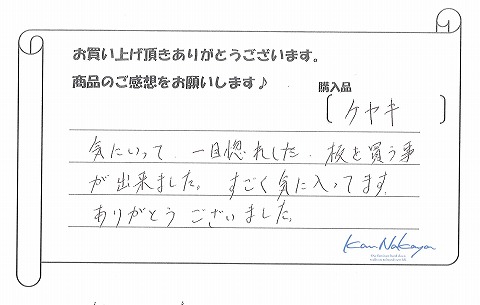 お買い上げ頂きありがとうございます。
商品のご感想をお願いします♪
購入品
[ ケヤキ ]
気にいって 一目惚れした 板を買う事
が 出来ました。 すごく気に入ってます。
ありがとう ございました。